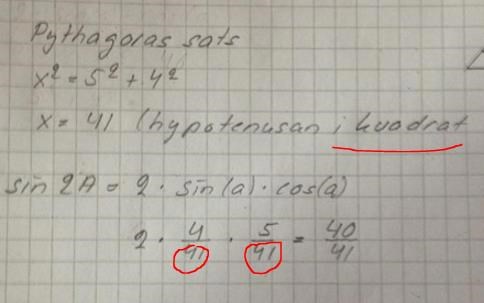 Pythagoras sats
x² = 5² + 4²
x = 41 (hypotenusan i kvadrat
sin 2A = 2 · sin(a) · cos(a)
2 · 4/41 · 5/41 = 40/41